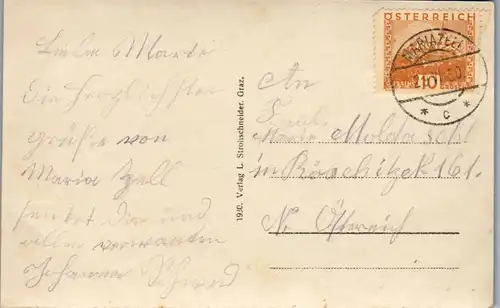 Liebe Marie
Die herzlichsten
grüße von
Maria Zell
sendet Dir und
allen verwanten
Johanna Schmid
1930. Verlag L. Strohschneider, Graz.
ÖSTERREICH
MARIAZELL
10
* c *
An
Frl.
Marie Molda
in Röschitz No 161.
N. Östereich